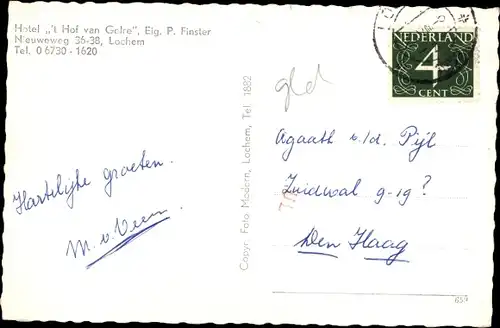 Hotel „'t Hof van Gelre”, Eig. P. Finster
Nieuweweg 36-38, Lochem
Tel. 0 6730 - 1620
NEDERLAND
4
CENT
gld
Hartelijke groeten.
M. v. Veen
Copyr. Foto Modern, Lochem, Tel. 1882
Agaath v./d. Pijl
Zuidwal 9-19?
Den Haag
659